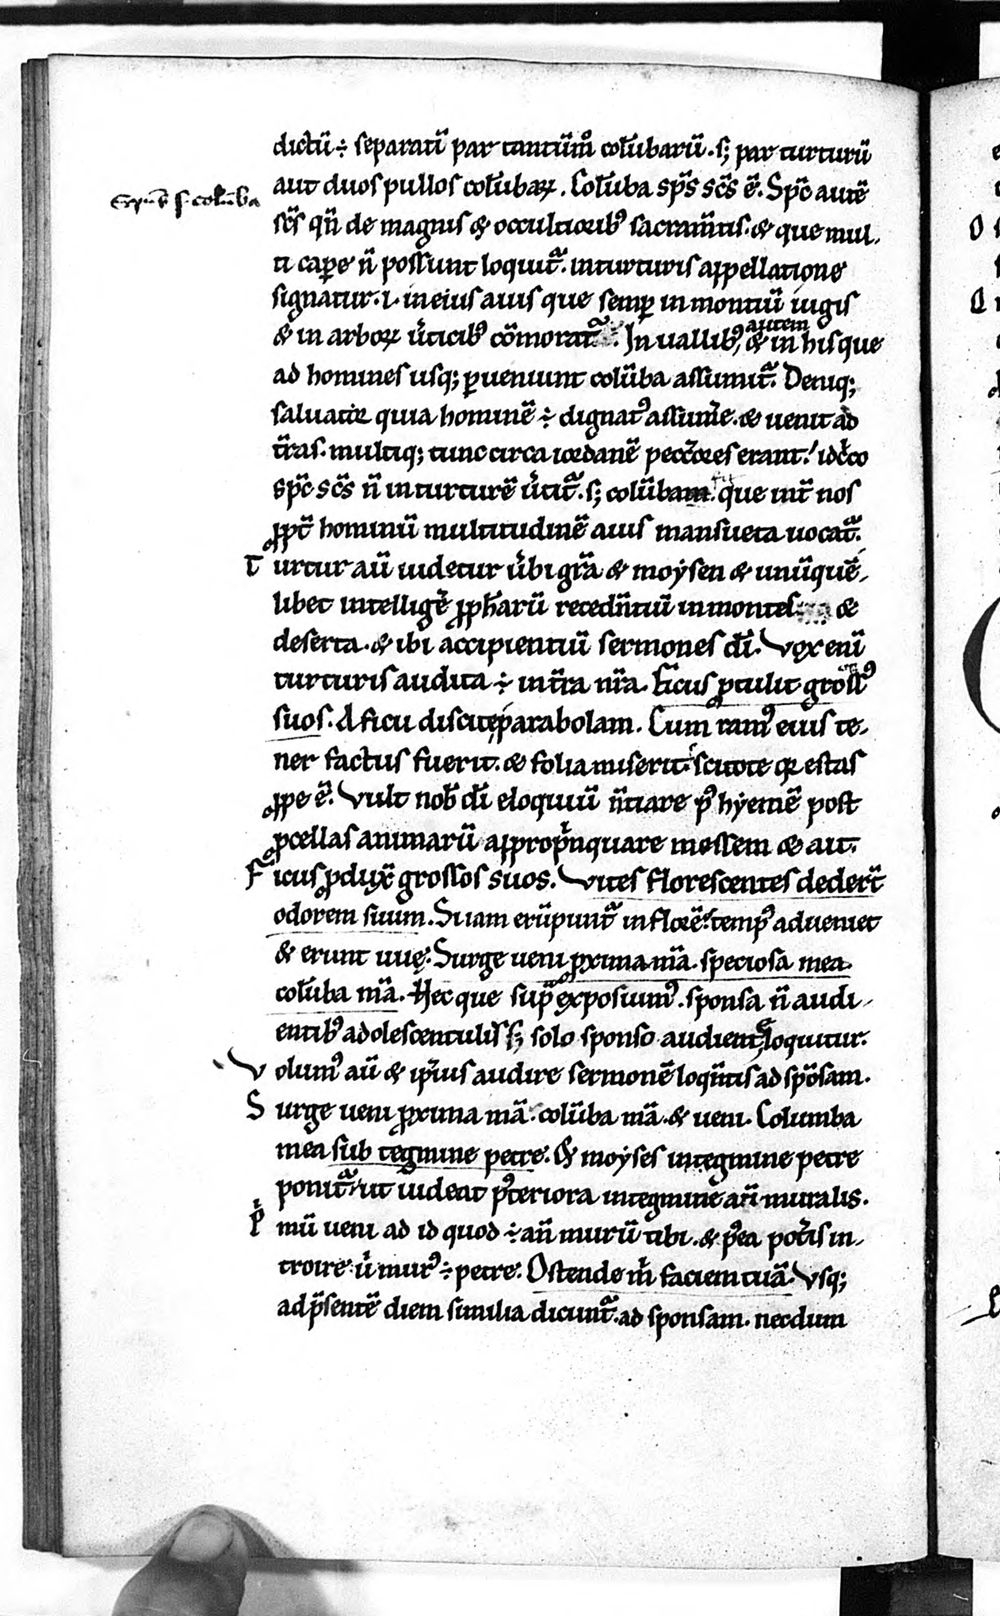 dictū ÷ separatū par tantūm̊ colūbarū . sꝫ par turturū
aut duos pullos colūbaꝝ . Colūba sp̄s sc̄s ē . Sp̄c autē
sc̄s qn̄ de magnis & occultiorib᷒ sacram̄tis . & que mul-
ti caꝑe n̄ possunt loquit᷑ . in turturis appellatione
signatur . i . in eius auis que semꝑ in montiū iugis
& in arboꝝ u̓ticib᷒ cōmorat᷑ . In uallib᷒ autem & in his que
ad homines usqꝫ ꝑueniunt colūba assumit᷑ . Deniqꝫ
saluator quia hominē ÷ dignat᷒ assum̄e . & uenit ad
t̄ras . multiqꝫ tunc circa iordanē pecc̄ores erant . idc̓co
sp̄c sc̄s n̄ in turturē u̓tit᷑ . sꝫ colūbam fit que int̄ nos
ꝓpt̄ hominū multitudinē auis mansueta uocat᷑ .
Turtur aū uidetur u̓bi gr̄a & moẏsen & unūquē-
libet intellige̓ ꝓph̄arū recedn̄tiū in montes & 
deserta . & ibi accipientiū sermones dī . Vox enī
turturis audita ÷ in t̄ra nr̄a . Ficus ꝓtulit gross᷒
suos . A ficu discite parabolam . Cum ram᷒ eius te-
ner factus fuerit . & folia miserit . scitote qꝫ estas
ꝓpe ē . Vult nob̄ dī eloquiū n̄tiare p᷒ hẏemē post
ꝓcellas animarū appropīnquare messem & ait .
Ficus ꝓdux̄ grossos suos . Vites florescentes dedert̄
odorem suum . Suam erūpunt᷑ in florē . temp᷒ adueniet
& erunt uuę . Surge ueni ꝓxima m̄a . speciosa mea .
colūba m̄a . Hec que sup̄ exposuim᷒ . sponsa n̄ audi-
entib᷒ adolescentulis sꝫ solo sponso audiente loquitur .
Volum᷒ aū & ip̄ius audire sermonē loqn̄tis ad spōsam .
Surge ueni ꝓxima m̄a . colūba m̄a . & ueni . Columba
mea sub tegmine petre . Et moẏses in tegmine petre
ponit᷑ . ut uideat p᷒teriora in tegmine an̄ muralis .
Pͥmū ueni ad id quod ÷ an̄ murū tibi . & p᷒ea pot̓is in-
troire . u̓ mur᷒ ÷ petre . Ostende m̄ faciem tuā . Vsqꝫ
ad p̄sentē diem similia dicunt᷑ . ad sponsam . necdum